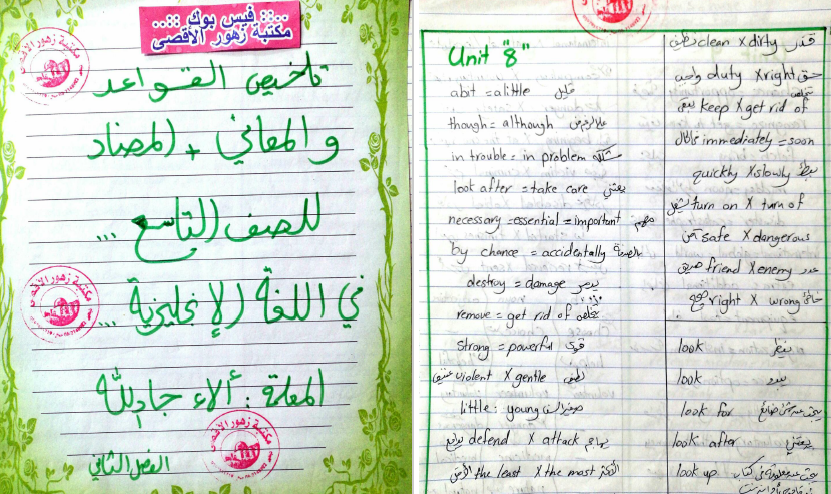 ..:: فيس بوك ::..
مكتبة زهور الأقصى
تلخيص القواعد
و المعاني + المضاد
للصف التاسع ...
في اللغة الإنجليزية ...
المعلمة : ألاء جادالله
الفصل الثاني
Unit "8"
abit = alittle قليل
though = although على الرغم من
in trouble = in problem مشكلة
look after = take care يعتني
necessary = essential = important مهم
by chance = accidentally بالصدفة
destroy = damage يدمر
remove = get rid of يتخلص
strong = powerful قوي
عنيف violent X gentle لطيف
little : young صغير السن
يدافع defend X attack يهاجم
الأقل the least X the most الأكثر
نظيف clean X dirty قذر
واجب duty X right حق
يبقي keep X get rid of يتخلص
immediately = soon
quickly X slowly بطيء
turn on X turn of
آمن safe X dangerous
صديق friend X enemy عدو
صحيح right X wrong خاطئ
look ينظر
look يبدو
look for يبحث عن شيء ضائع
look after يعتني
look up يبحث عن معلومة في كتاب